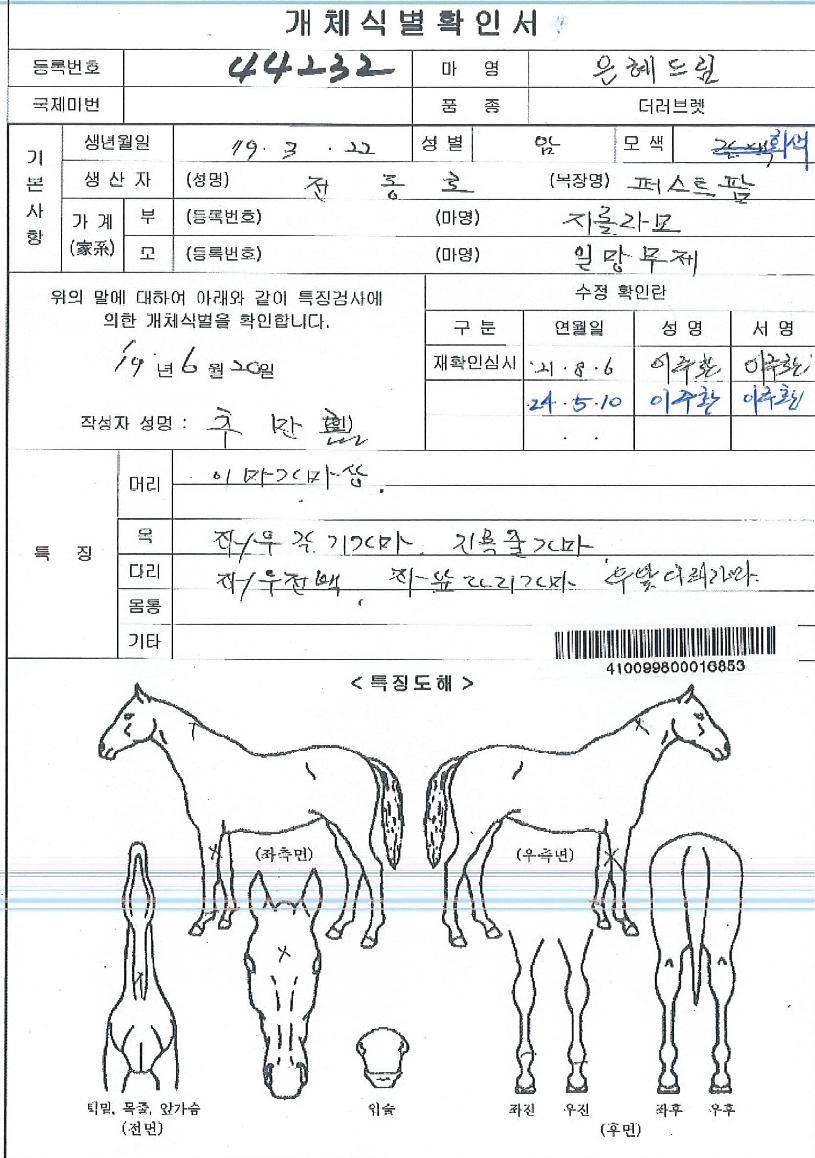 개체식별확인서
등록번호 44232 마 명 은혜드림
국제미번 품 종 더러브렛
기본사항
생년월일 19. 3 . 22 성별 암 모색 회색
생산자 (성명) 전 종 호 (목장명) 퍼스트팜
가계 (家系) 부 (등록번호) (마명) 지롤라모
모 (등록번호) (마명) 일망무제
위의 말에 대하여 아래와 같이 특징검사에
의한 개체식별을 확인합니다.
'19 년 6 월 20일
작성자 성명 : 추 만
수정 확인란
구분 연월일 성명 서명
재확인심시 '21 . 8 . 6 이주환 이주환
24 . 5 . 10 이주환 이주환
. .
특 징
머리 이마가마상.
목 좌/우 각 기가마. 지목줄가마
다리 좌/우전백 좌-앞다리가마
몸통
기타
410099800016853
< 특징도해 >
(좌측면) (우측면)
턱밑, 목줄, 앞가슴 입술 좌진 우진 좌후 우후
(전면) (후면)